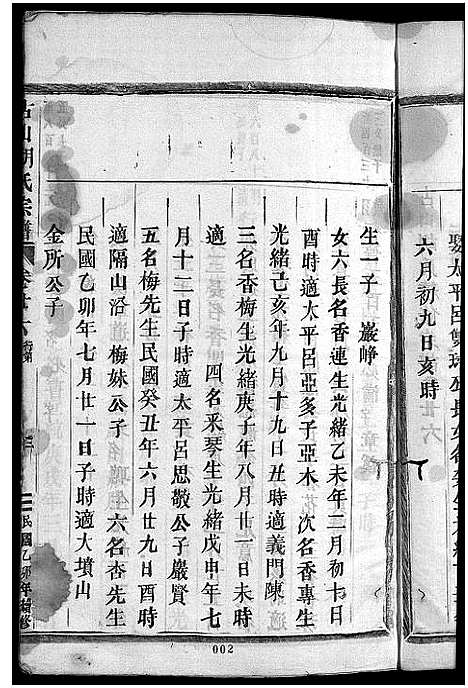 六月初九日亥時
生一子　巖崢
女六長名香連生光緒乙未年二月初十日
酉時適太平呂亞多子亞木　次名香專生
光緒己亥年九月十九日丑時適義門陳
三名香梅生光緒庚子年八月廿一日未時
適　四名釆琴生光緒戊申年七
月十二日子時適太平呂思敬公子巖賢
五名梅先生民國癸丑年六月廿九日酉時
適隔山沿　梅妹公子　六名杏先生
民國乙卯年七月廿一日子時適大墳山
金所公子
古山胡氏宗譜
民國乙卯年續修
002